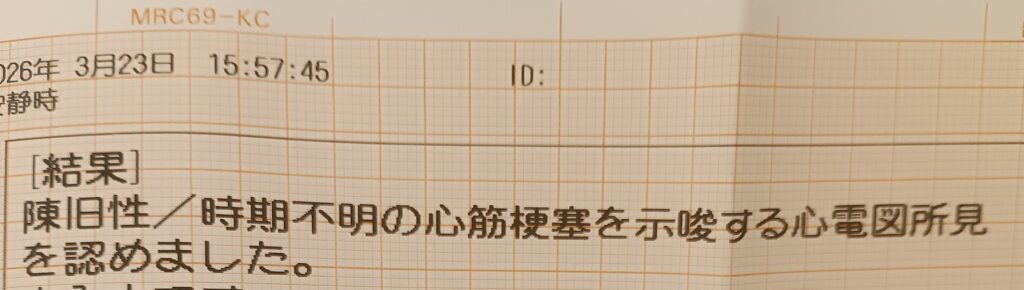 MRC69-KC
026年 3月23日 15:57:45 ID:
安静時
[結果]
陳旧性／時期不明の心筋梗塞を示唆する心電図所見
を認めました。